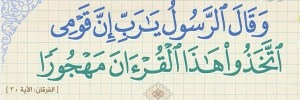 وَقَالَ ٱلرَّسُولُ يَٰرَبِّ إِنَّ قَوْمِى
ٱتَّخَذُوا۟ هَٰذَا ٱلْقُرْءَانَ مَهْجُورًا
[الفرقان: الآية ٣٠]